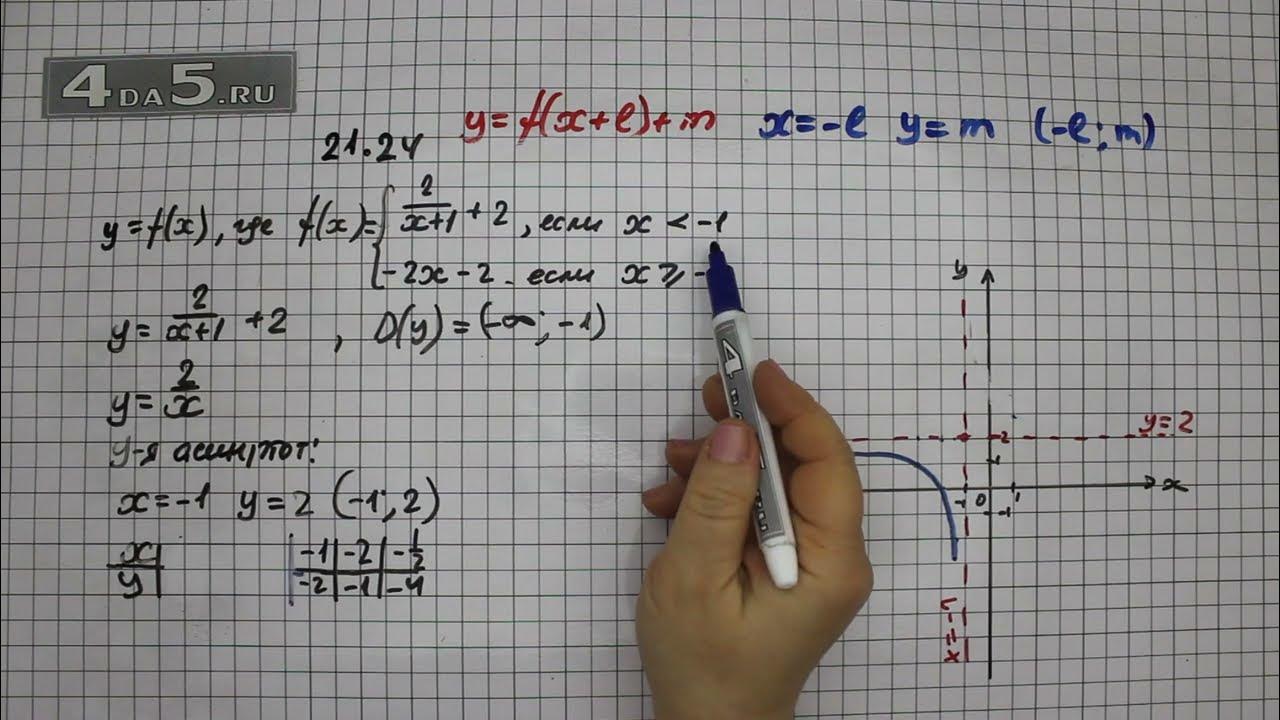 4DA5.RU
y=f(x+l)+m   x=-l   y=m   (-l; m)
21.24
y=f(x), где f(x)={ 2/(x+1) + 2, если x < -1
-2x-2. если x ⩾ -
y= 2/(x+1) +2 , D(y)=(-∞; -1)
y= 2/x
y=2
у-я асимптот:
x=-1   y=2   (-1; 2)
x | | -1 | -2 | -1/2
y | | -2 | -1 | -4
y
2
1
-1 0 1 x
-1
x=-1
4